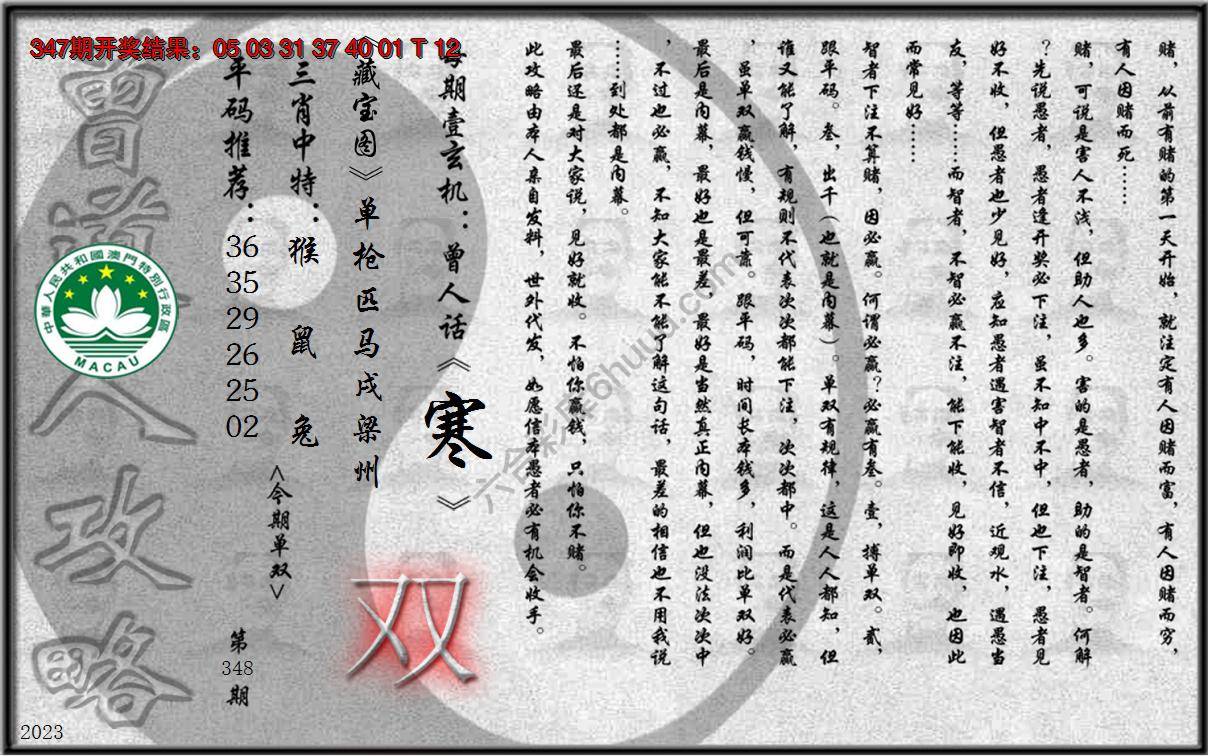 赌，从前有赌的第一天开始，就注定有人因赌而富，有人因赌而穷，
有人因赌而死……
赌，可说是害人不浅，但助人也多。害的是愚者，助的是智者。何解
？先说愚者，愚者逢开奖必下注，虽不知中不中，但也下注，愚者见
好不收，但愚者也少见好，应知愚者遇害智者不信，近观水，遇愚当
友，等等……而智者，不智必赢不注，能下能收，见好即收，也因此
而常见好……
智者下注不算赌，因必赢。何谓必赢？必赢有叁。壹，搏单双。贰，
跟平码。叁，出千（也就是内幕）。单双有规律，这是人人都知，但
谁又能了解，有规则不代表次次都能下注，次次都中。而是代表必赢
，虽单双赢钱慢，但可靠。跟平码，时间长本钱多，利润比单双好。
最后是内幕，最好也是最差，最好是当然真正内幕，但也没法次次中
，不过也必赢，不知大家能不能了解这句话，最差的相信也不用我说
……到处都是内幕。
最后还是对大家说，见好就收。不怕你赢钱，只怕你不赌。
此攻略由本人亲自发料，世外代发，如愿信本愚者必有机会收手。
每期壹玄机：曾人话《寒》
《藏宝图》单枪匹马戌梁州
三肖中特：猴 鼠 兔
<今期单双>
双
平码推荐：36 35 29 26 25 02
第348期
347期开奖结果：05 03 31 37 40 01 T 12
曾道人攻略
中華人民共和國澳門特別行政區
MACAU
2023
六合彩库6huuu.com